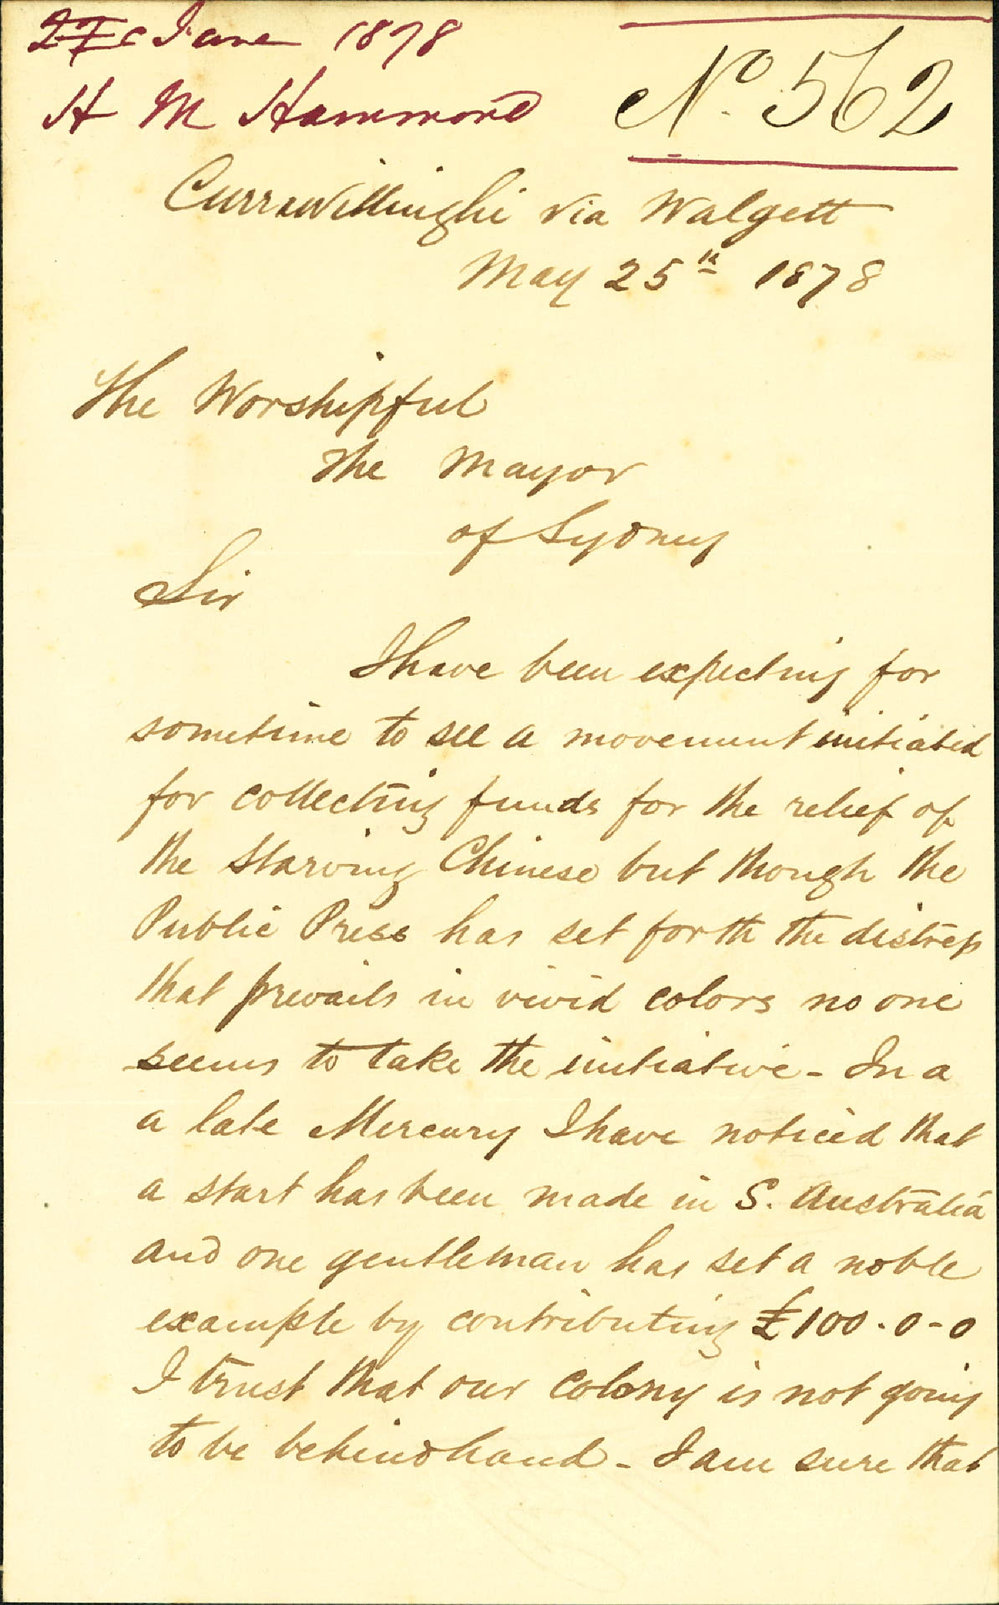 June 1878
H M Hammond
No. 562
Currawillinghi via Walgett
May 25th 1878
The Worshipful
The Mayor
of Sydney
Sir
I have been expecting for
sometime to see a movement initiated
for collecting funds for the relief of
the starving Chinese but though the
Public Press has set forth the distress
that prevails in vivid colors no one
seems to take the initiative - In a
a late Mercury I have noticed that
a start has been made in S. Australia
and one gentleman has set a noble
example by contributing £100.0-0
I trust that our colony is not going
to be behindhand - I am sure that